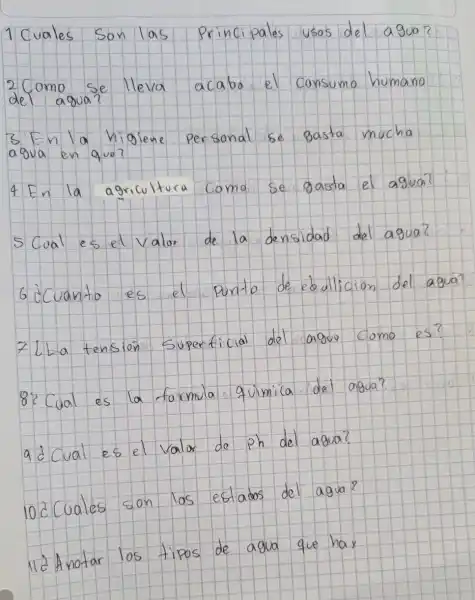 1 Cuales son las Principales usos del agua?
2 Como se lleva acabo el consumo humano
del agua?
3 En la higiene personal se gasta mucha
agua en que?
4 En la agricultura como se gasta el agua?
5 Cual es el valor de la densidad del agua?
6 ¿Cuanto es el punto de ebullicion del agua?
7 ¿La tension superficial del agua como es?
8 ¿Cual es la formula quimica del agua?
9 ¿Cual es el valor de ph del agua?
10 ¿Cuales son los estados del agua?
11 ¿Anotar los tipos de agua que hay